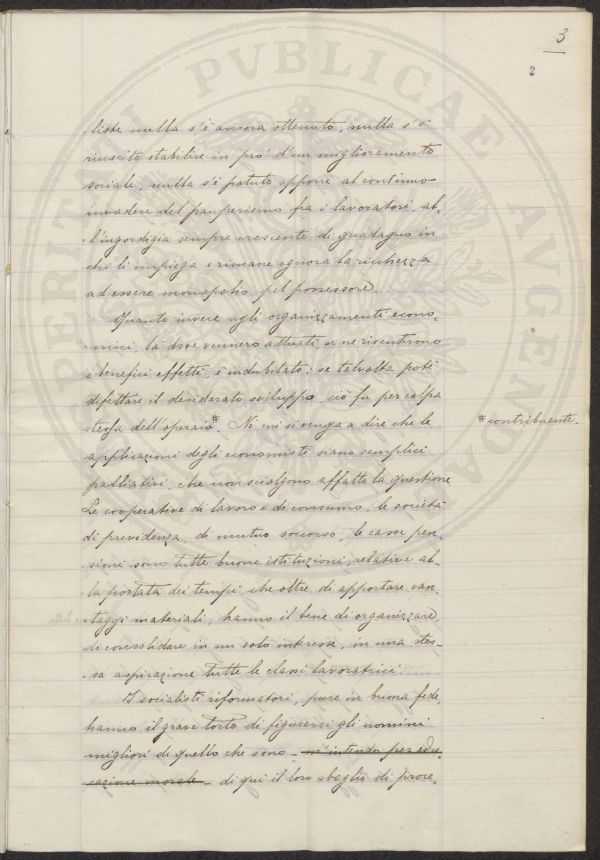 3
2
liste nulla s'è ancora ottenuto, nulla s'è
riuscito stabilire in prò d'un miglioramento
sociale, nulla s'è potuto apporre al continuo
invadere del pauperismo fra i lavoratori, al-
l'ingordigia sempre crescente di guadagno in
chi li impiega e rimane ognora la ricchezza
ad essere monopolio pel possessore.
Quanto invece agli organizzamenti econo-
mici, là dove vennero attuati se ne risentirono
i benefici effetti è indubitato; se talvolta potè
difettare il desiderato sviluppo ciò fu per colpa
stessa dell'operaio #. Nè mi si venga a dire che le
# contribuente.
applicazioni degli economisti siano semplici
palliativi, che non sciolgono affatto la questione
Le cooperative di lavoro e di consumo, le società
di previdenza, di mutuo soccorso, le casse pen-
sioni sono tutte buone istituzioni, relative al-
la portata dei tempi che oltre di apportare van-
taggi materiali, hanno il bene di organizzare,
di consolidare in un solo interesse, in una stes-
sa aspirazione tutte le classi lavoratrici.
I socialisti riformatori, pure in buona fede,
hanno il grave torto di figurarsi gli uomini
migliori di quello che sono - m'intendo per edu-
cazione morale - di qui il loro sbaglio di proce-
PERITVRA PVBLICAE AVGENDAM